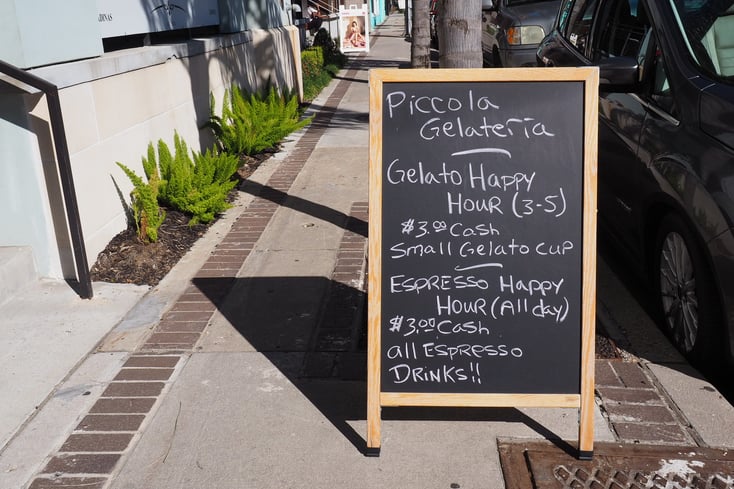 RDINAS
Piccola
Gelatería
Gelato Happy
Hour (3-5)
$3.00 Cash
Small Gelato Cup
Espresso Happy
Hour (All day)
$3.00 Cash
all Espresso
Drinks!!